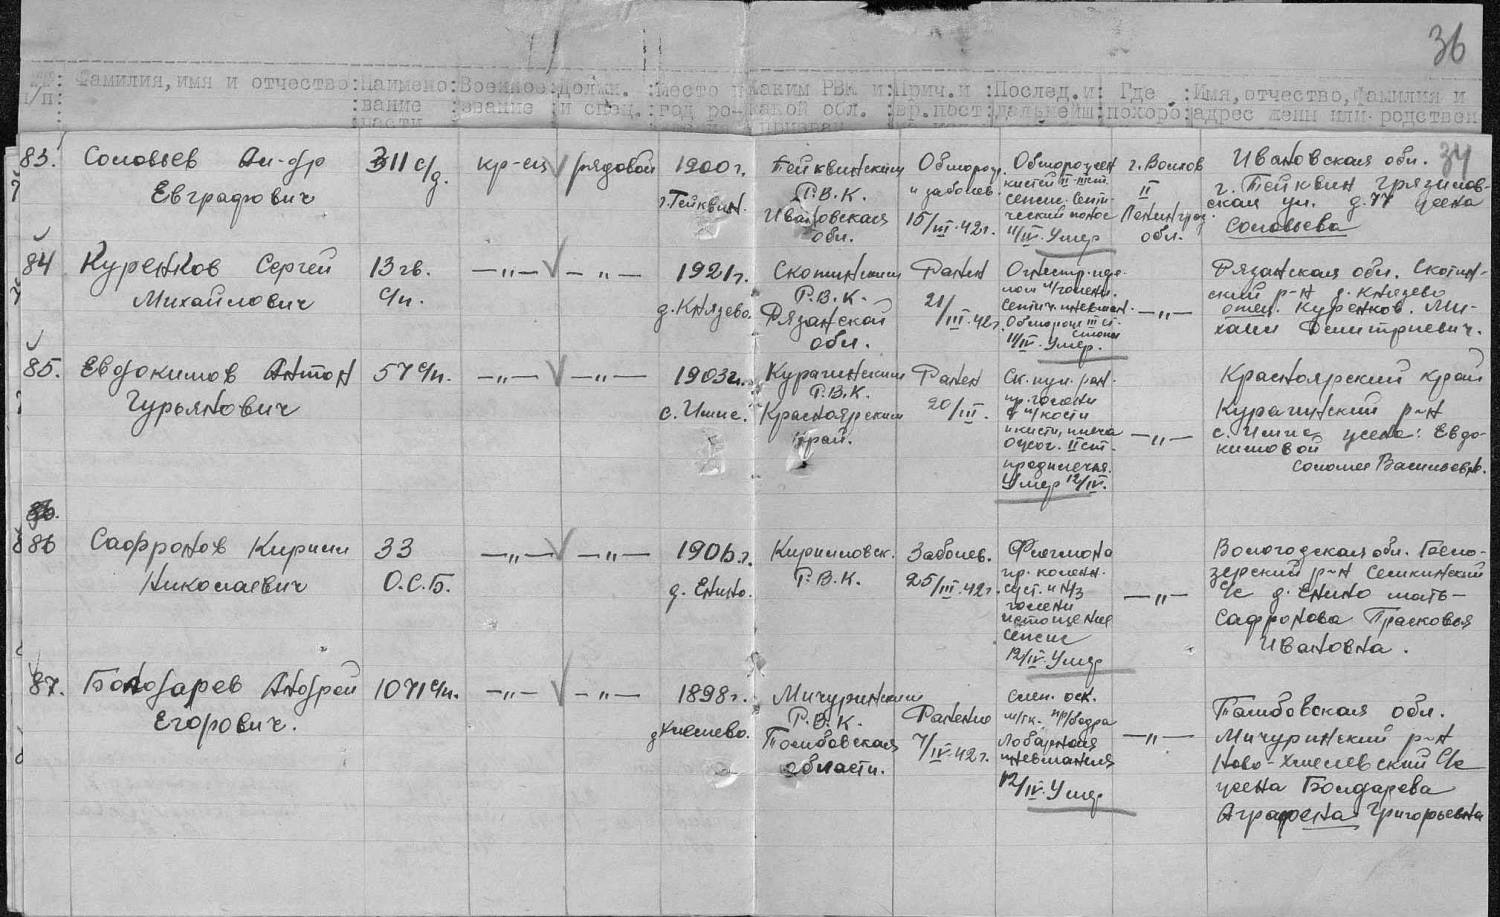 36
Фамилия, имя и отчество
Наимено-
вание
части
Военное
звание
Должн.
и спец.
Место и
год ро-
Каким РВК и
какой обл.
призван
Прич. и
вр. пост
Послед. и
дальнейш
Где
похоро
Имя, отчество, фамилия и
адрес жени или родствен
34
83.
Соловьев Ал-др
Евграфович
311 с/д.
кр-ец
рядовой
1900 г.
г. Тейквин.
Тейквинским
Р.В.К.
Ивановская
обл.
Обморож.
и заболев.
15/III.42г.
Обморожен
кистей II-III ст.
сепсис. Септи-
ческий понос
11/IV. Умер
г. Волхов
II
Ленинград.
обл.
Ивановская обл.
г. Тейквин Грязнов-
ская ул. д. 77 жена
Соловьева
84
Куренков Сергей
Михайлович
13 гв.
с/п.
—„— —„—
1921 г.
д. Князево.
Скопинским
Р.В.К.
Рязанской
обл.
Ранен
21/III.42г.
Огнестр. пере-
лом п/голени.
Септич. пневмон.
Обморож III ст.
стопы
11/IV. Умер.
—„—
Рязанская обл. Скопин-
ский р-н д. Князево
отец. Куренков. Ми-
хаил Дмитриевич.
85.
Евдокимов Антон
Гурьянович
57 с/п.
—„— —„—
1903 г.
с. Имис.
Курагинским
Р.В.К.
Красноярским
край.
Ранен
20/III.
Ск. пул. ран.
пр. голени
и кисти, плеча
II ст.
предплечья.
Умер 12/IV.
—„—
Красноярский край
Курагинский р-н
с. Имис жена: Евдо-
кимовой
Соломея Васильевн.
86
Сафронов Кирилл
Николаевич
33
О.С.Б.
—„— —„—
1906 г.
д. Енино.
Кирилловск.
Р.В.К.
Заболев.
25/III.42г.
Флегмона
пр. колен.
суст. и н/з
голени
истощение
сепсис
12/IV. Умер
—„—
Вологодская обл. Бело-
зерский р-н Семкинский
с/с д. Енино мать—
Сафронова Прасковья
Ивановна.
87.
Бондарев Андрей
Егорович.
1071 с/п.
—„— —„—
1898 г.
Мичуринским
Р.В.К.
Тамбовская
области.
Ранение
7/IV.42г.
Слеп. оск.
м/тк. пр/бедра
лобарная
пневмания
12/IV. Умер
—„—
Тамбовская обл.
Мичуринский р-н
Ново-Хмелевский с/с
жена Бондарева
Аграфена Григорьевна